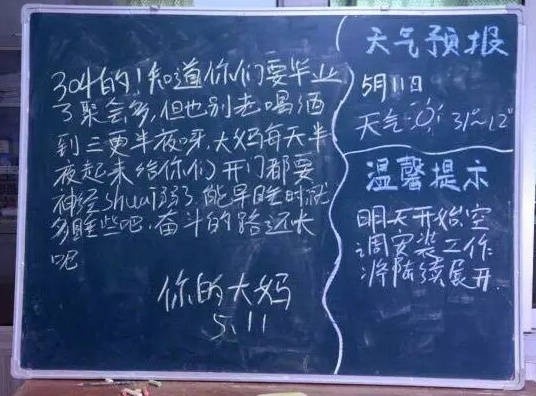 304的！知道你们要毕业
了聚会多，但也别老喝酒
到三更半夜呀，大妈每天半
夜起来给你们开门都要
神经shuai弱了，能早睡时就
多睡些吧，奋斗的路还长
呢
你的大妈
5.11
天气预报
5月11日
天气 31°~12°
温馨提示
明天开始，空
调安装工作
将陆续展开.